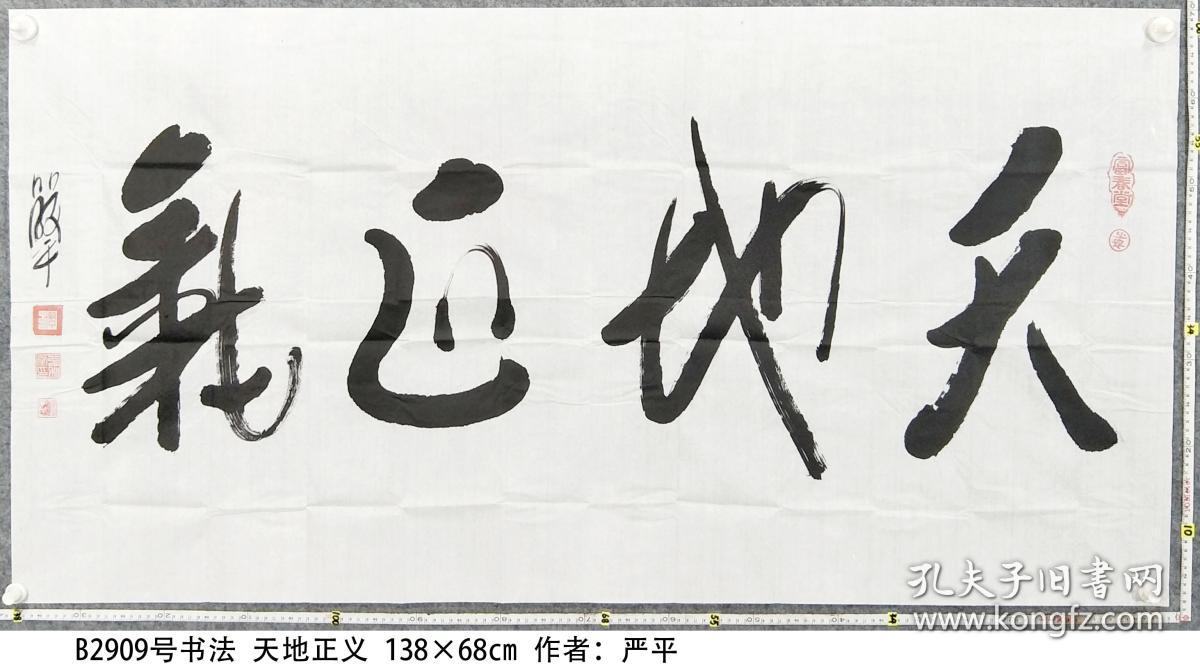 天地正氣
嚴平
孔夫子旧书网
www.kongfz.com
B2909号书法 天地正义 138×68cm 作者：严平